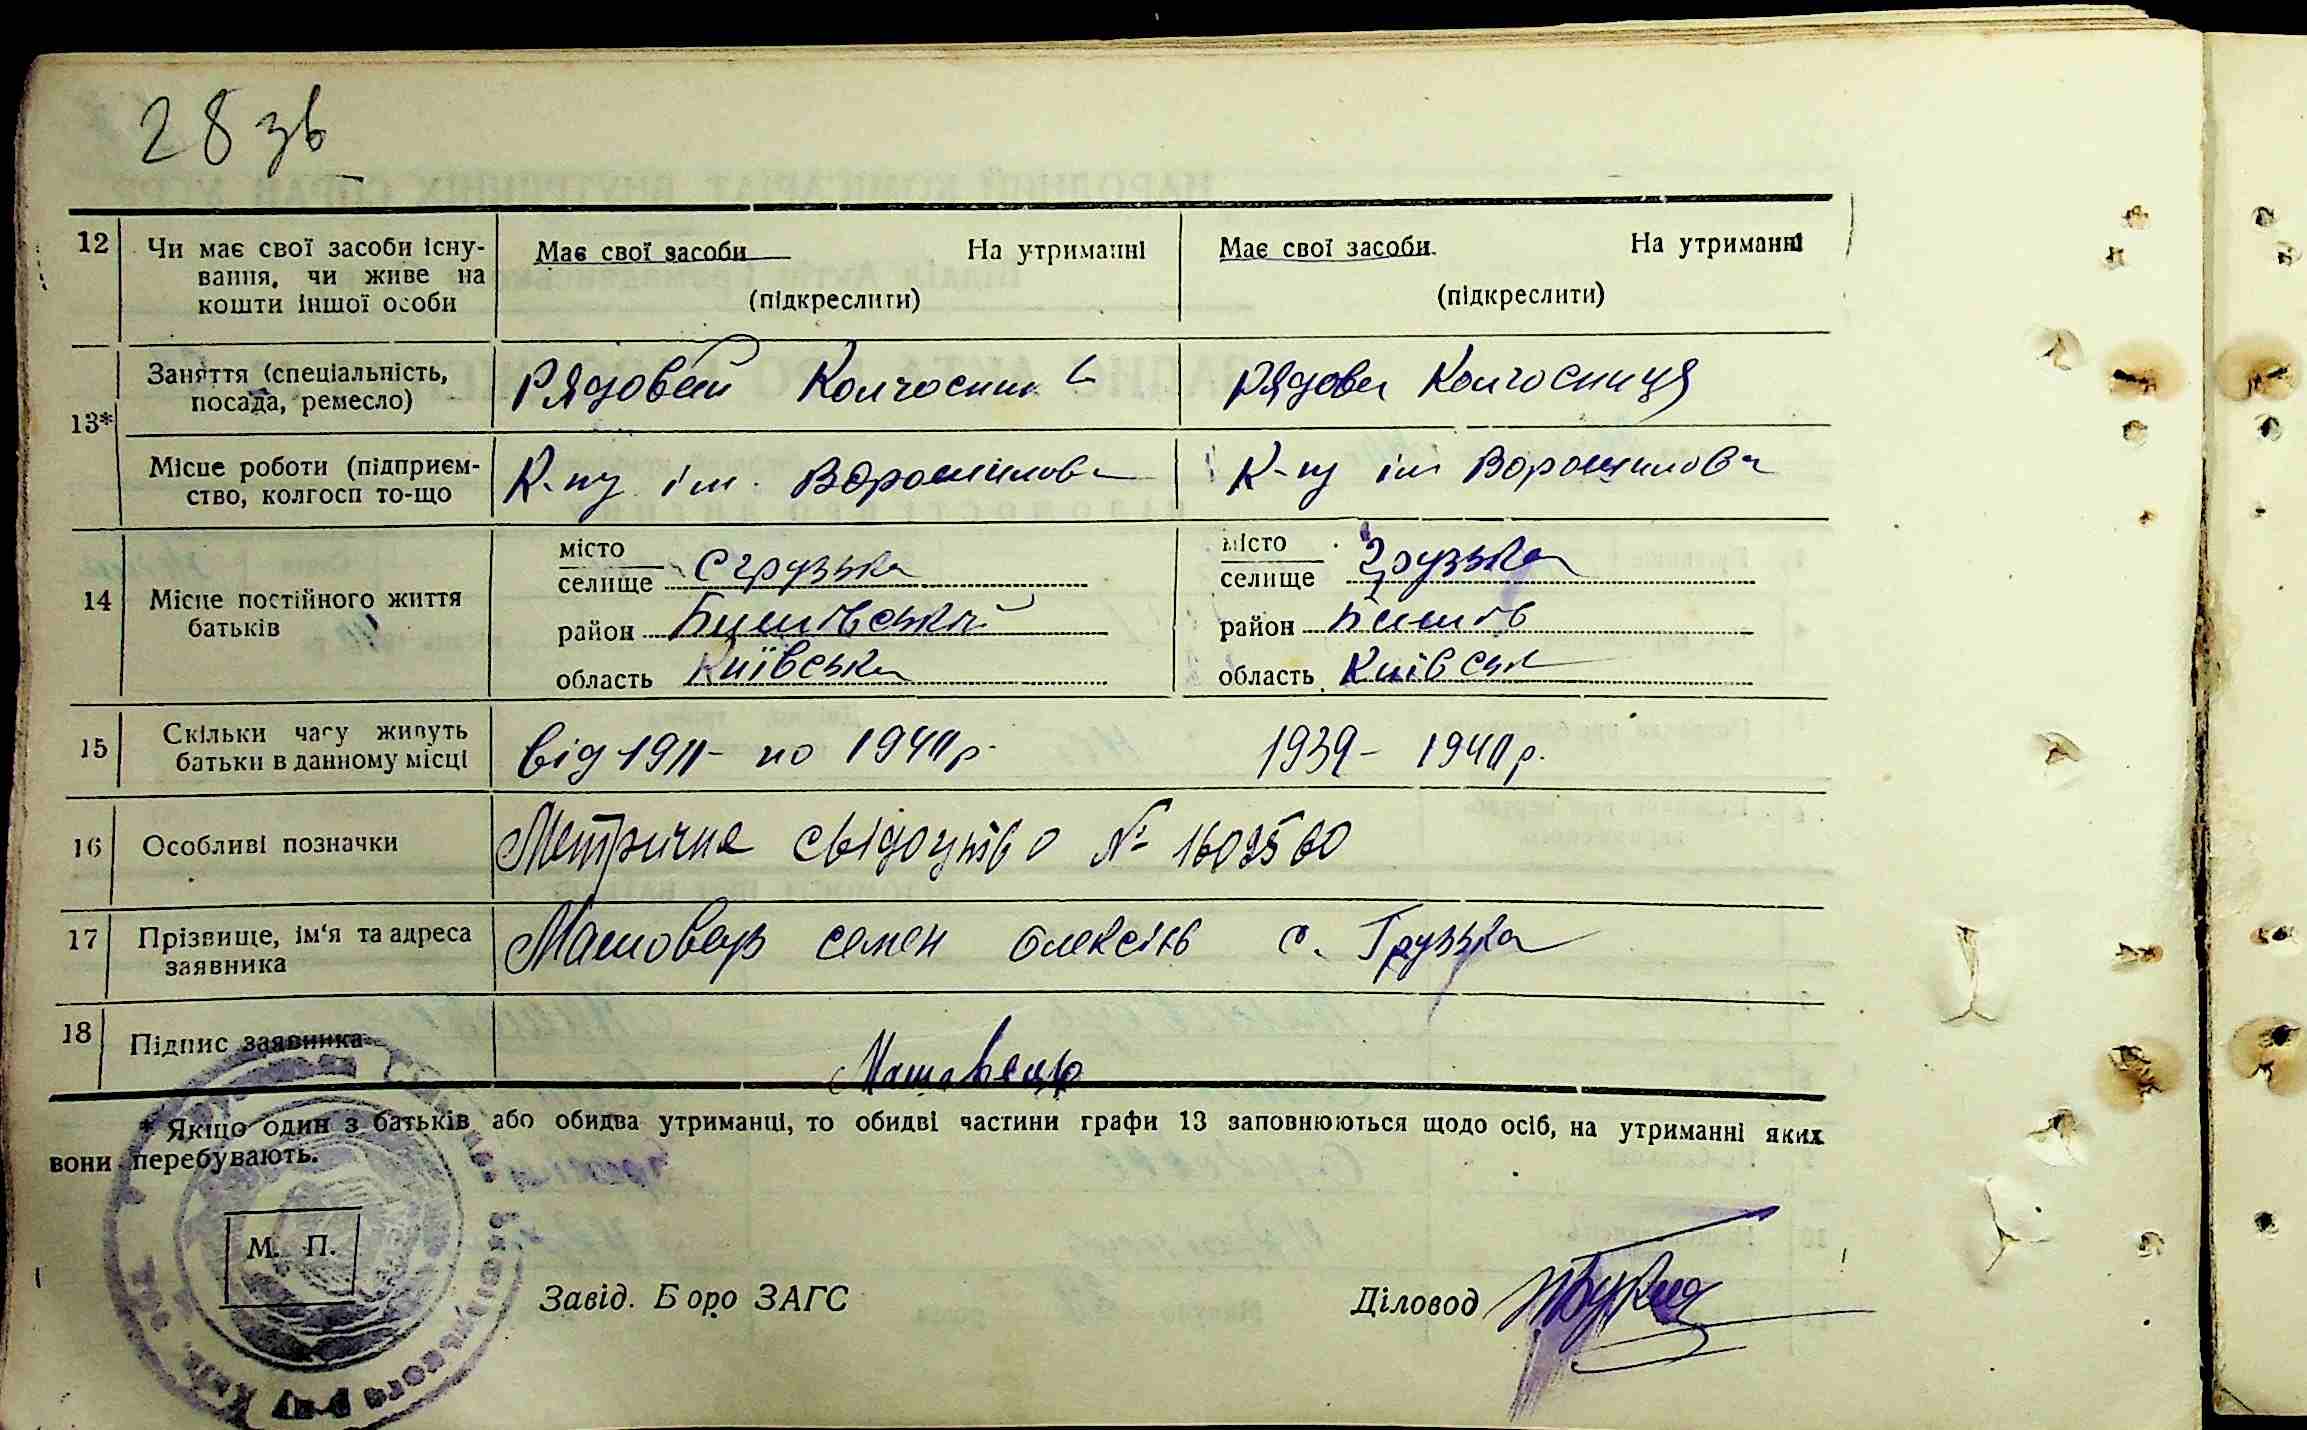 28 зв
12 Чи має свої засоби існу-
вання, чи живе на
кошти іншої особи
Має свої засоби На утриманні
(підкреслити)
Має свої засоби На утриманні
(підкреслити)
13* Заняття (спеціальність,
посада, ремесло)
Рядовий Колгосник
рядова Колгосниця
Місце роботи (підприєм-
ство, колгосп то-що
К-пу ім. Ворошилова
К-пу ім Ворошилова
14 Місце постійного життя
батьків
місто
селище с грузька
район Бишівський
область Київська
місто
селище грузька
район Бишів
область Київськ
15 Скільки часу живуть
батьки в данному місці
Від 1911 - по 1940 р.
1939 - 1940 р.
16 Особливі позначки
Метричне свідоцтво №
17 Прізвище, ім'я та адреса
заявника
семен Олексіїв с. Грузька
18 Підпис заявника
* Якщо один з батьків або обидва утриманці, то обидві частини графи 13 заповнюються щодо осіб, на утриманні яких
вони перебувають.
М. П.
Завід. Бюро ЗАГС
Діловод